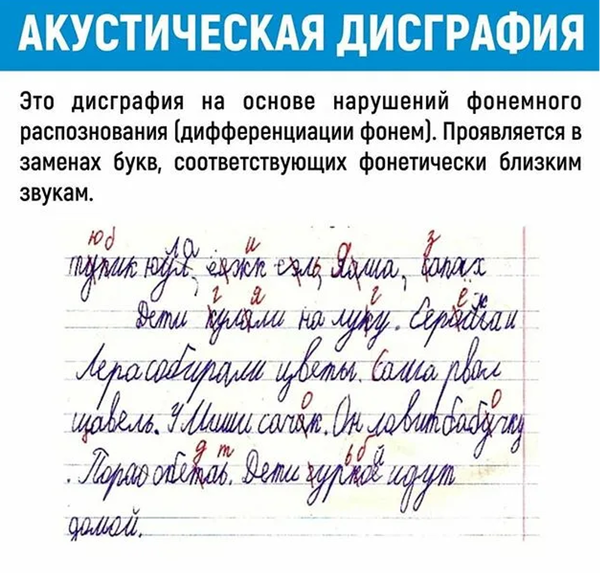 АКУСТИЧЕСКАЯ ДИСГРАФИЯ
Это дисграфия на основе нарушений фонемного
распознования (дифференциации фонем). Проявляется в
заменах букв, соответствующих фонетически близким
звукам.
ю б ла и з
тупик
г я г ё ж
Дети куляли на луку. и
Лера собирали цветы. Саша рвал
о о
щавель. У Миши сачак. Он ловит бабучку
д т ь б о й
. Дети идут
домой.